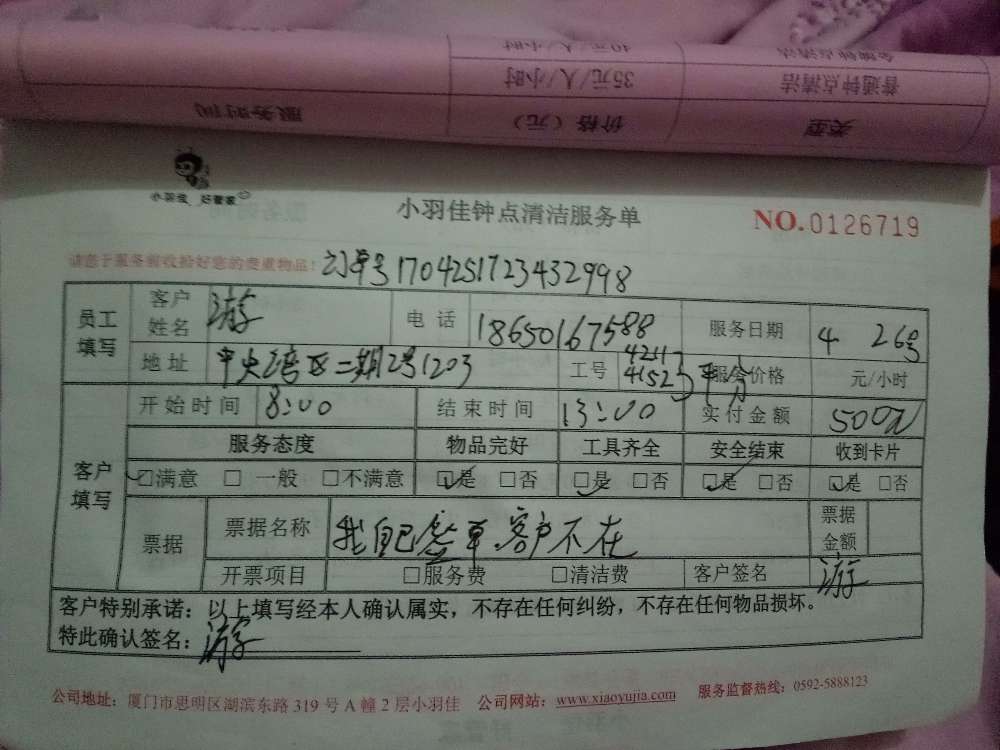 金牌钟点清洁 40元/人/小时
普通钟点清洁 35元/人/小时
类型 价格（元） 服务时间
小羽佳 好管家
小羽佳钟点清洁服务单
NO.0126719
请您于服务前收拾好您的贵重物品！ 订单号17042517234432998
员工填写 客户姓名 游 电话 18650167588 服务日期 4 26号
地址 中央湾区二期2号1203 工号 4211 4152 服务价格 元/小时
客户填写 开始时间 8:00 结束时间 13:00 实付金额 500元
服务态度 物品完好 工具齐全 安全结束 收到卡片
☑满意 □一般 □不满意 ☑是 □否 ☑是 □否 ☑是 □否 ☑是 □否
票据 票据名称 我自己签单客户不在 票据金额
开票项目 □服务费 □清洁费 客户签名 游
客户特别承诺：以上填写经本人确认属实，不存在任何纠纷，不存在任何物品损坏。
特此确认签名：游
公司地址：厦门市思明区湖滨东路 319 号 A 幢 2 层小羽佳 公司网站：www.xiaoyujia.com 服务监督热线：0592-5888123